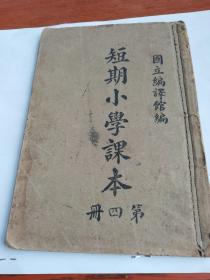 國立編譯館編
短期小學課本
第四冊